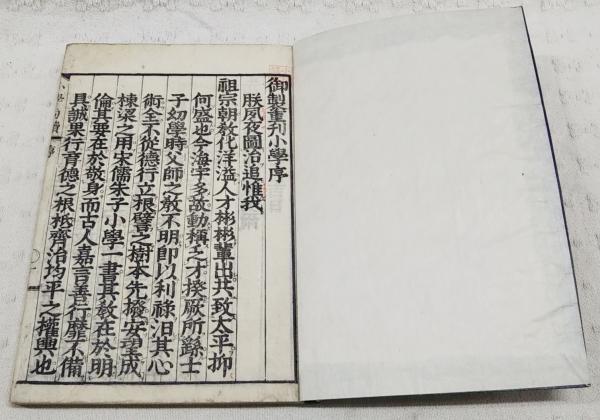 御製重刊小學序
朕夙夜圖治追惟我
祖宗朝敎化洋溢人才彬彬輩出共致太平抑
何盛也今海宇多故動稱乏才揆厥所繇士
子幼學時父師之敎不明卽以利祿汨其心
術全不從德行立根譬之樹本先撥安望成
棟梁之用宋儒朱子小學一書其敎在於明
倫其要在於敬身而古人嘉言善行靡不備
具誠果行育德之根柢齊治均平之權輿也